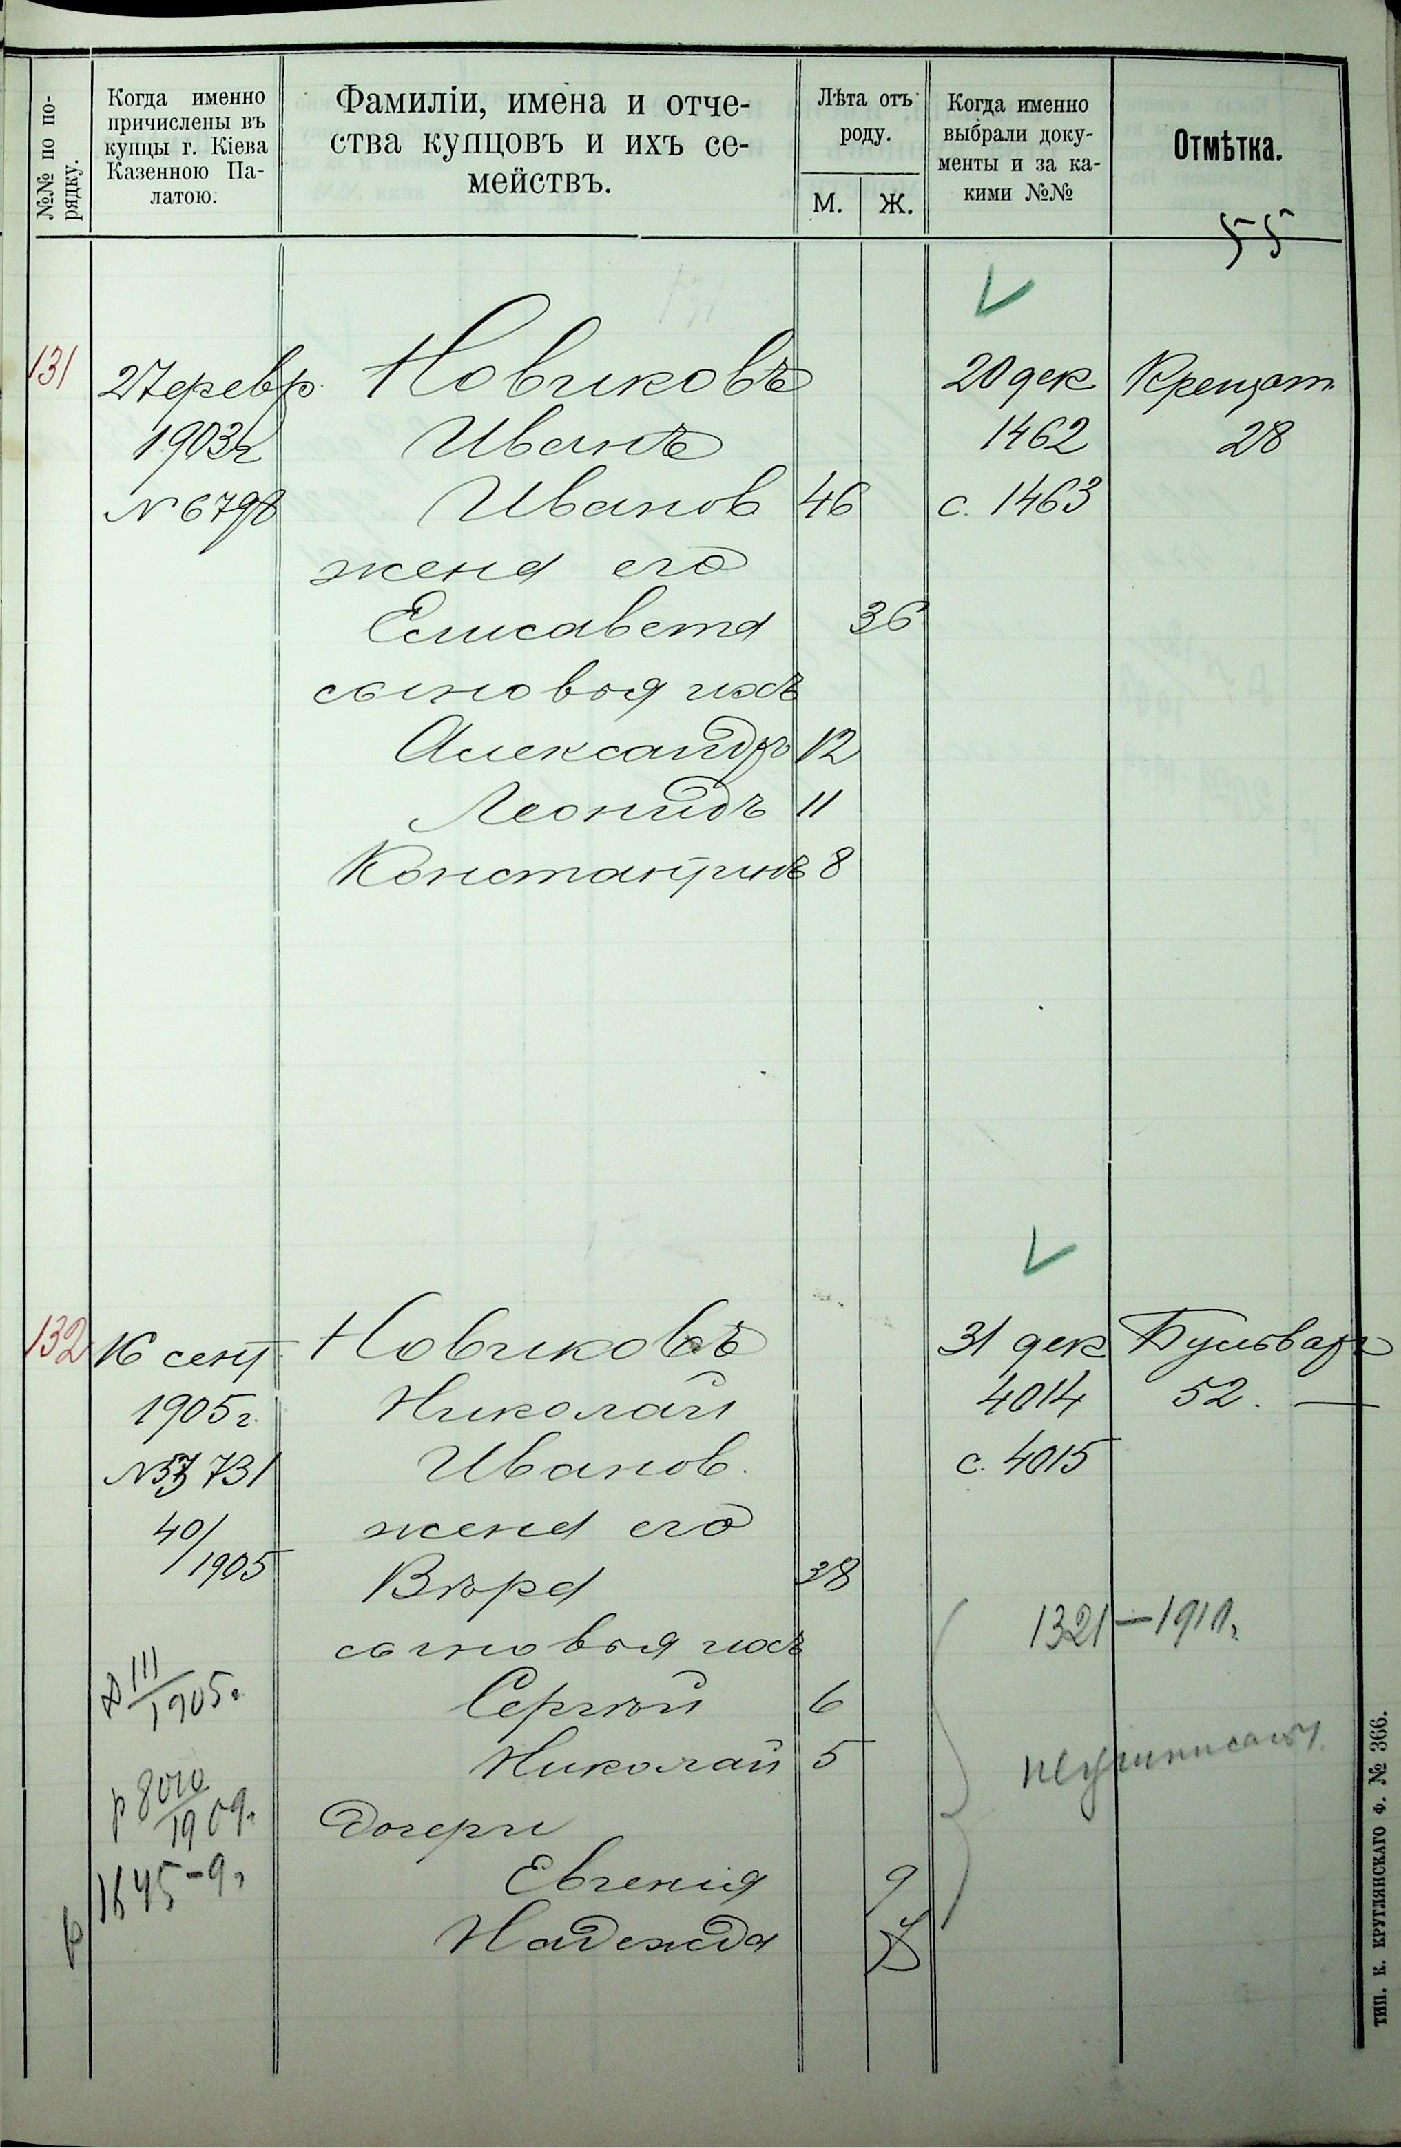 №№ по по-
рядку.
Когда именно
причислены въ
купцы г. Кіева
Казенною Па-
латою.
Фамиліи, имена и отче-
ства купцовъ и ихъ се-
мействъ.
Лѣта отъ
роду.
М. Ж.
Когда именно
выбрали доку-
менты и за ка-
кими №№
Отмѣтка.
55
131 27 февр. Новиковъ 20 дек Крещат.
1903 г Иванъ 1462 28
№ 6798 Иванов 46 с. 1463
жена его
Елисавета 36
сыновья ихъ
Александръ 12
Леонидъ 11
Константинъ 8
132 16 сент Новиковъ 31 дек Бульварн
1905 г. Николай 4014 52. —
№ 731 Иванов. с. 4015
40/1905 жена его
Вѣра 38
сыновья ихъ 1321 — 1910.
111/1905. Сергѣй 6
Николай 5
р 8010/1909. дочери
1645-9. Евгенія 9
р Надежда
ТИП. К. КРУГЛЯНСКАГО Ф. № 366.